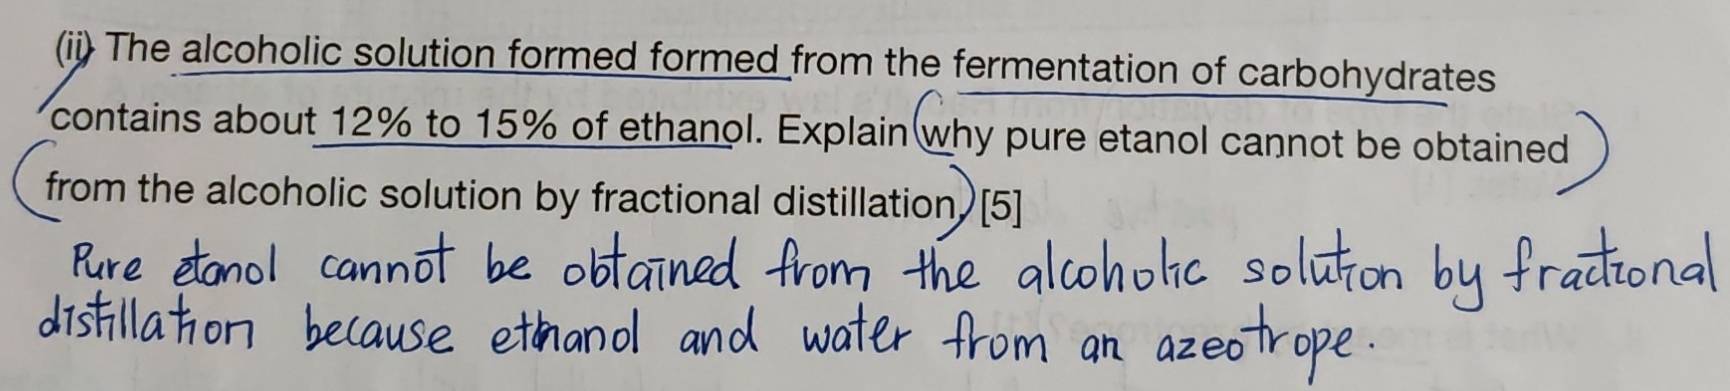 (ii) The alcoholic solution formed formed from the fermentation of carbohydrates
contains about 12% to 15% of ethanol. Explain why pure etanol cannot be obtained
from the alcoholic solution by fractional distillation, [5]
Pure etanol cannot be obtained from the alcoholic solution by fractional
distillation because ethanol and water from an azeotrope.